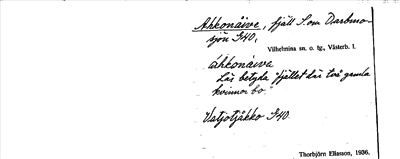 Ahkonåive, fjäll S om Darbmo-
sjön G40.
Vilhelmina sn. o. tg., Västerb. l.
áhkonåive
Läs betyda "fjället där två gamla
kvinnor bo."
Vatjotjåkko G40
Thorbjörn Eliasson, 1936.